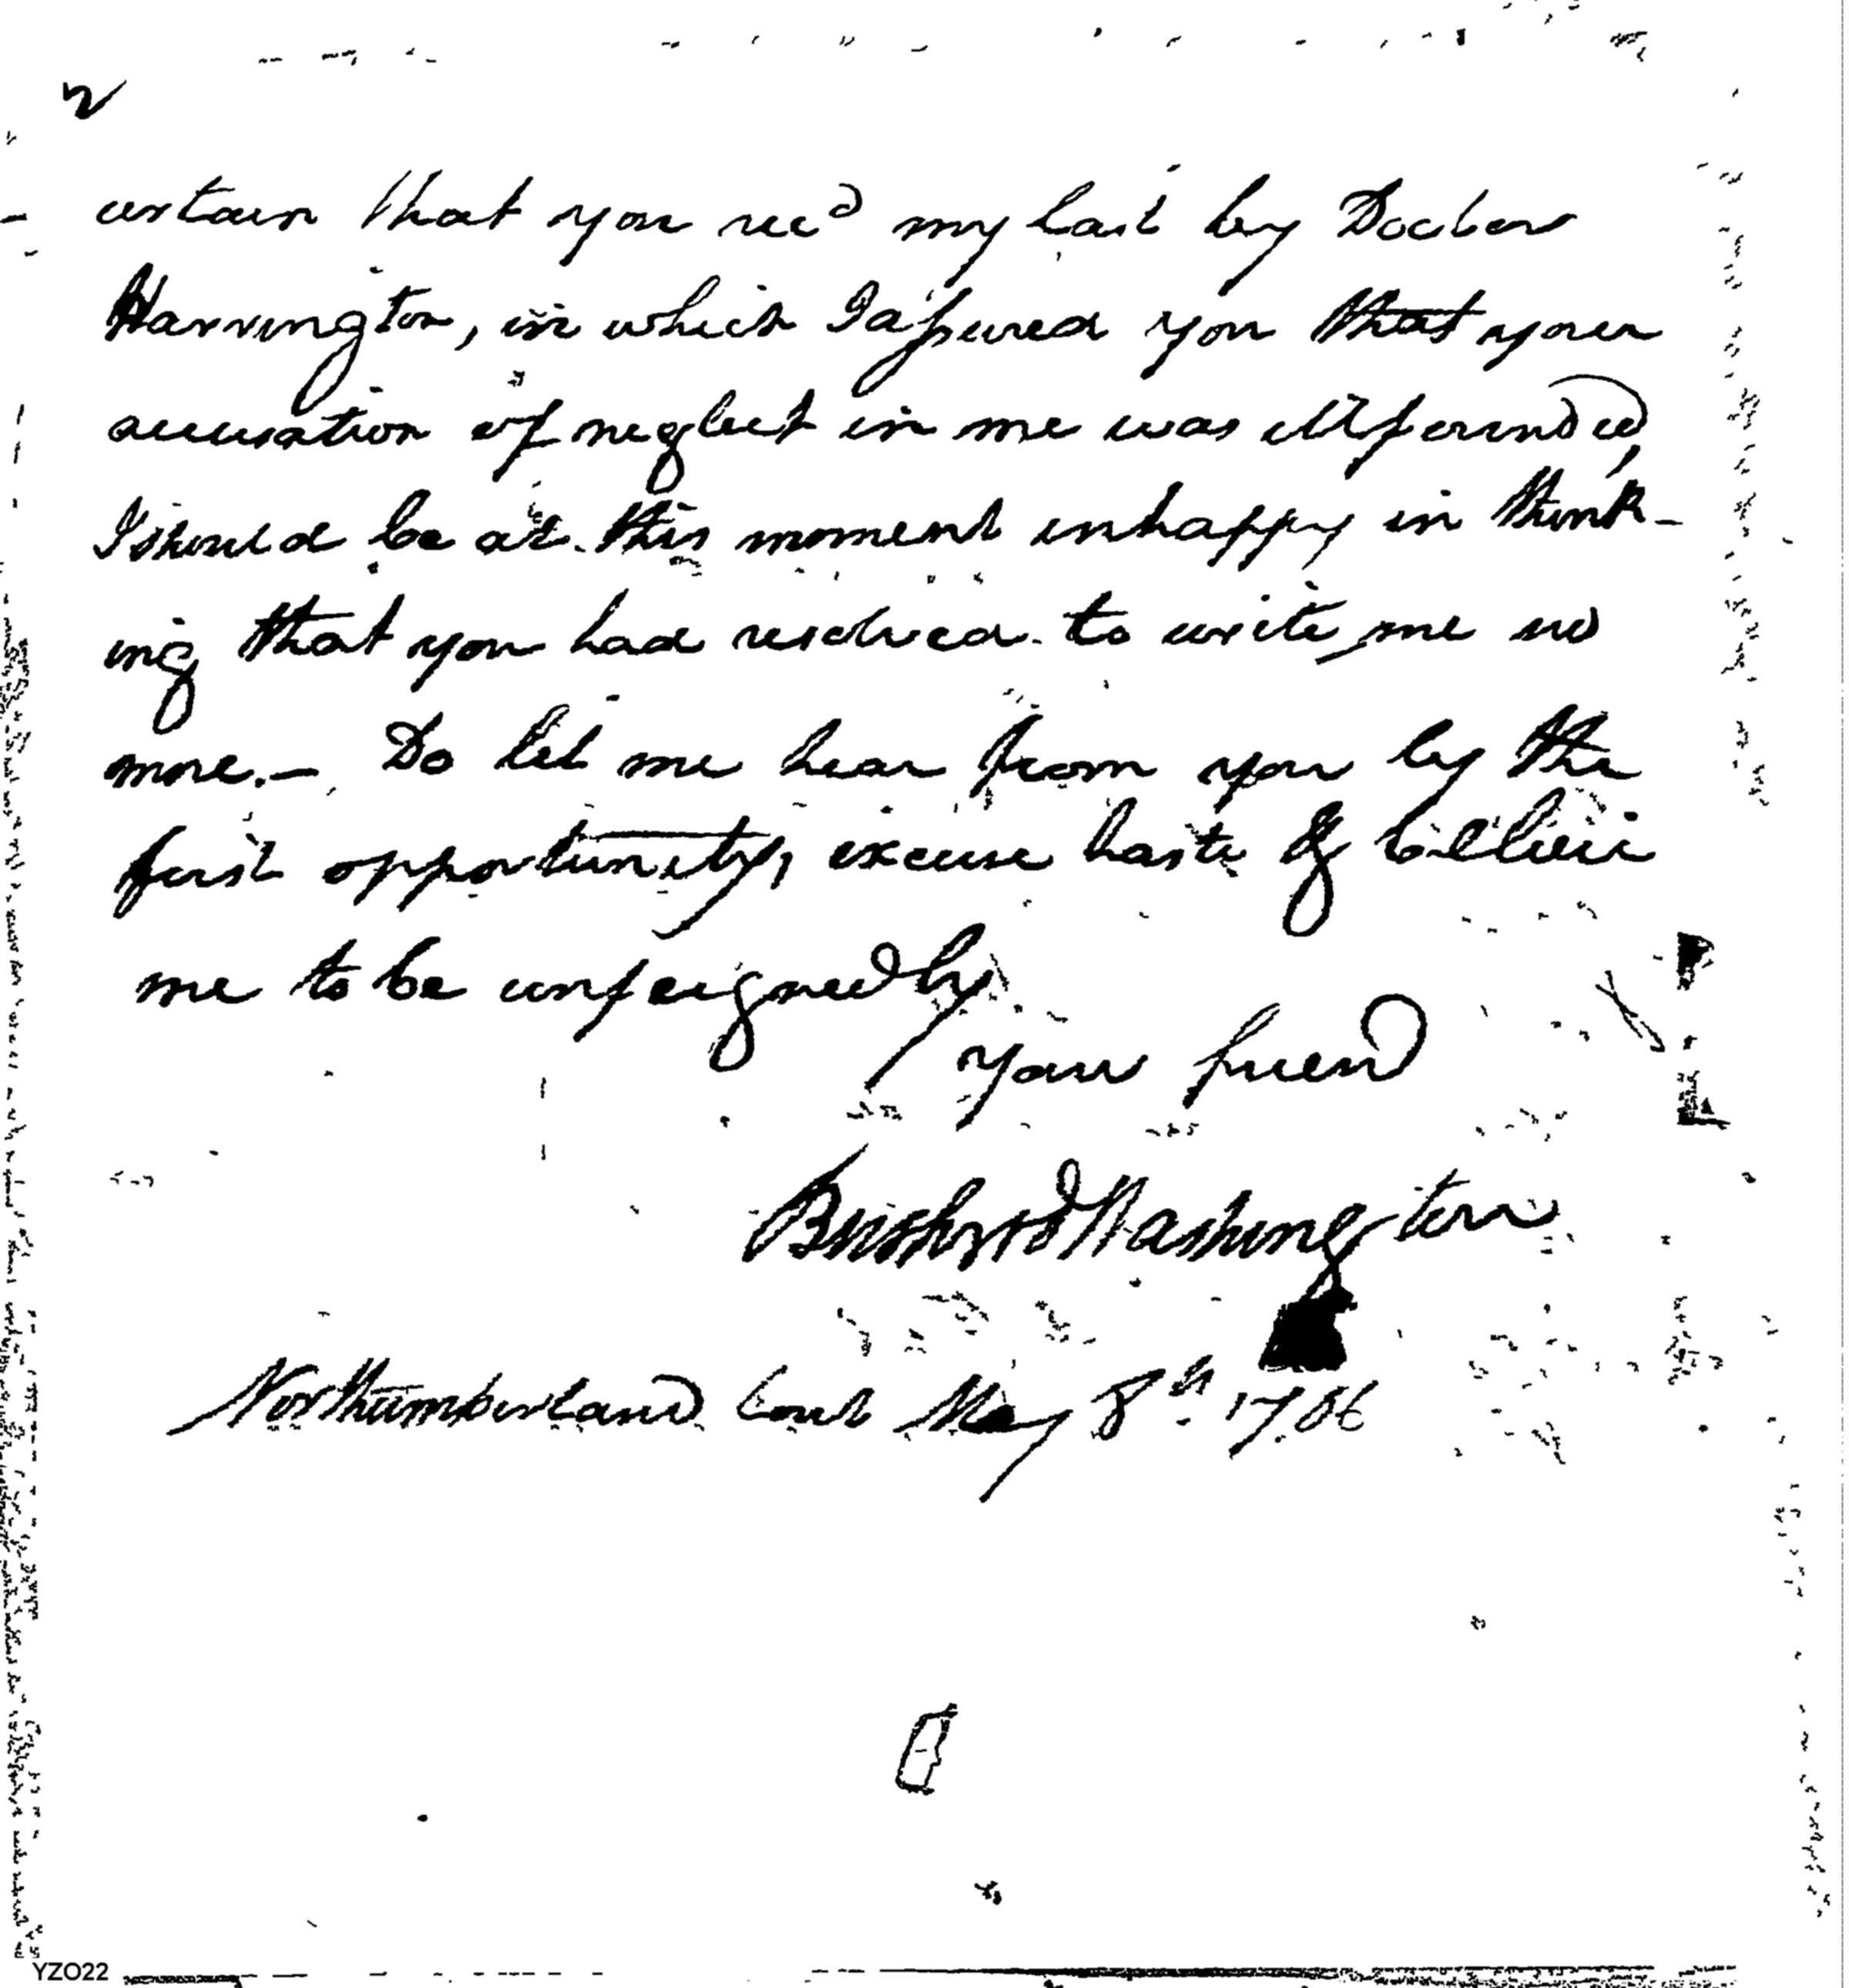 2
certain that you rec'd my last by Docter
Harrington, in which I assured you that your
accusation of neglect in me was illfounded,
I should be at this moment unhappy in think-
ing that you had resolved to write me no
more.— Do let me hear from you by the
first opportunity, excuse haste & believe
me to be unfeignedly
Your friend
Bushrod Washington
Northumberland Court May 8th 1786
YZO22